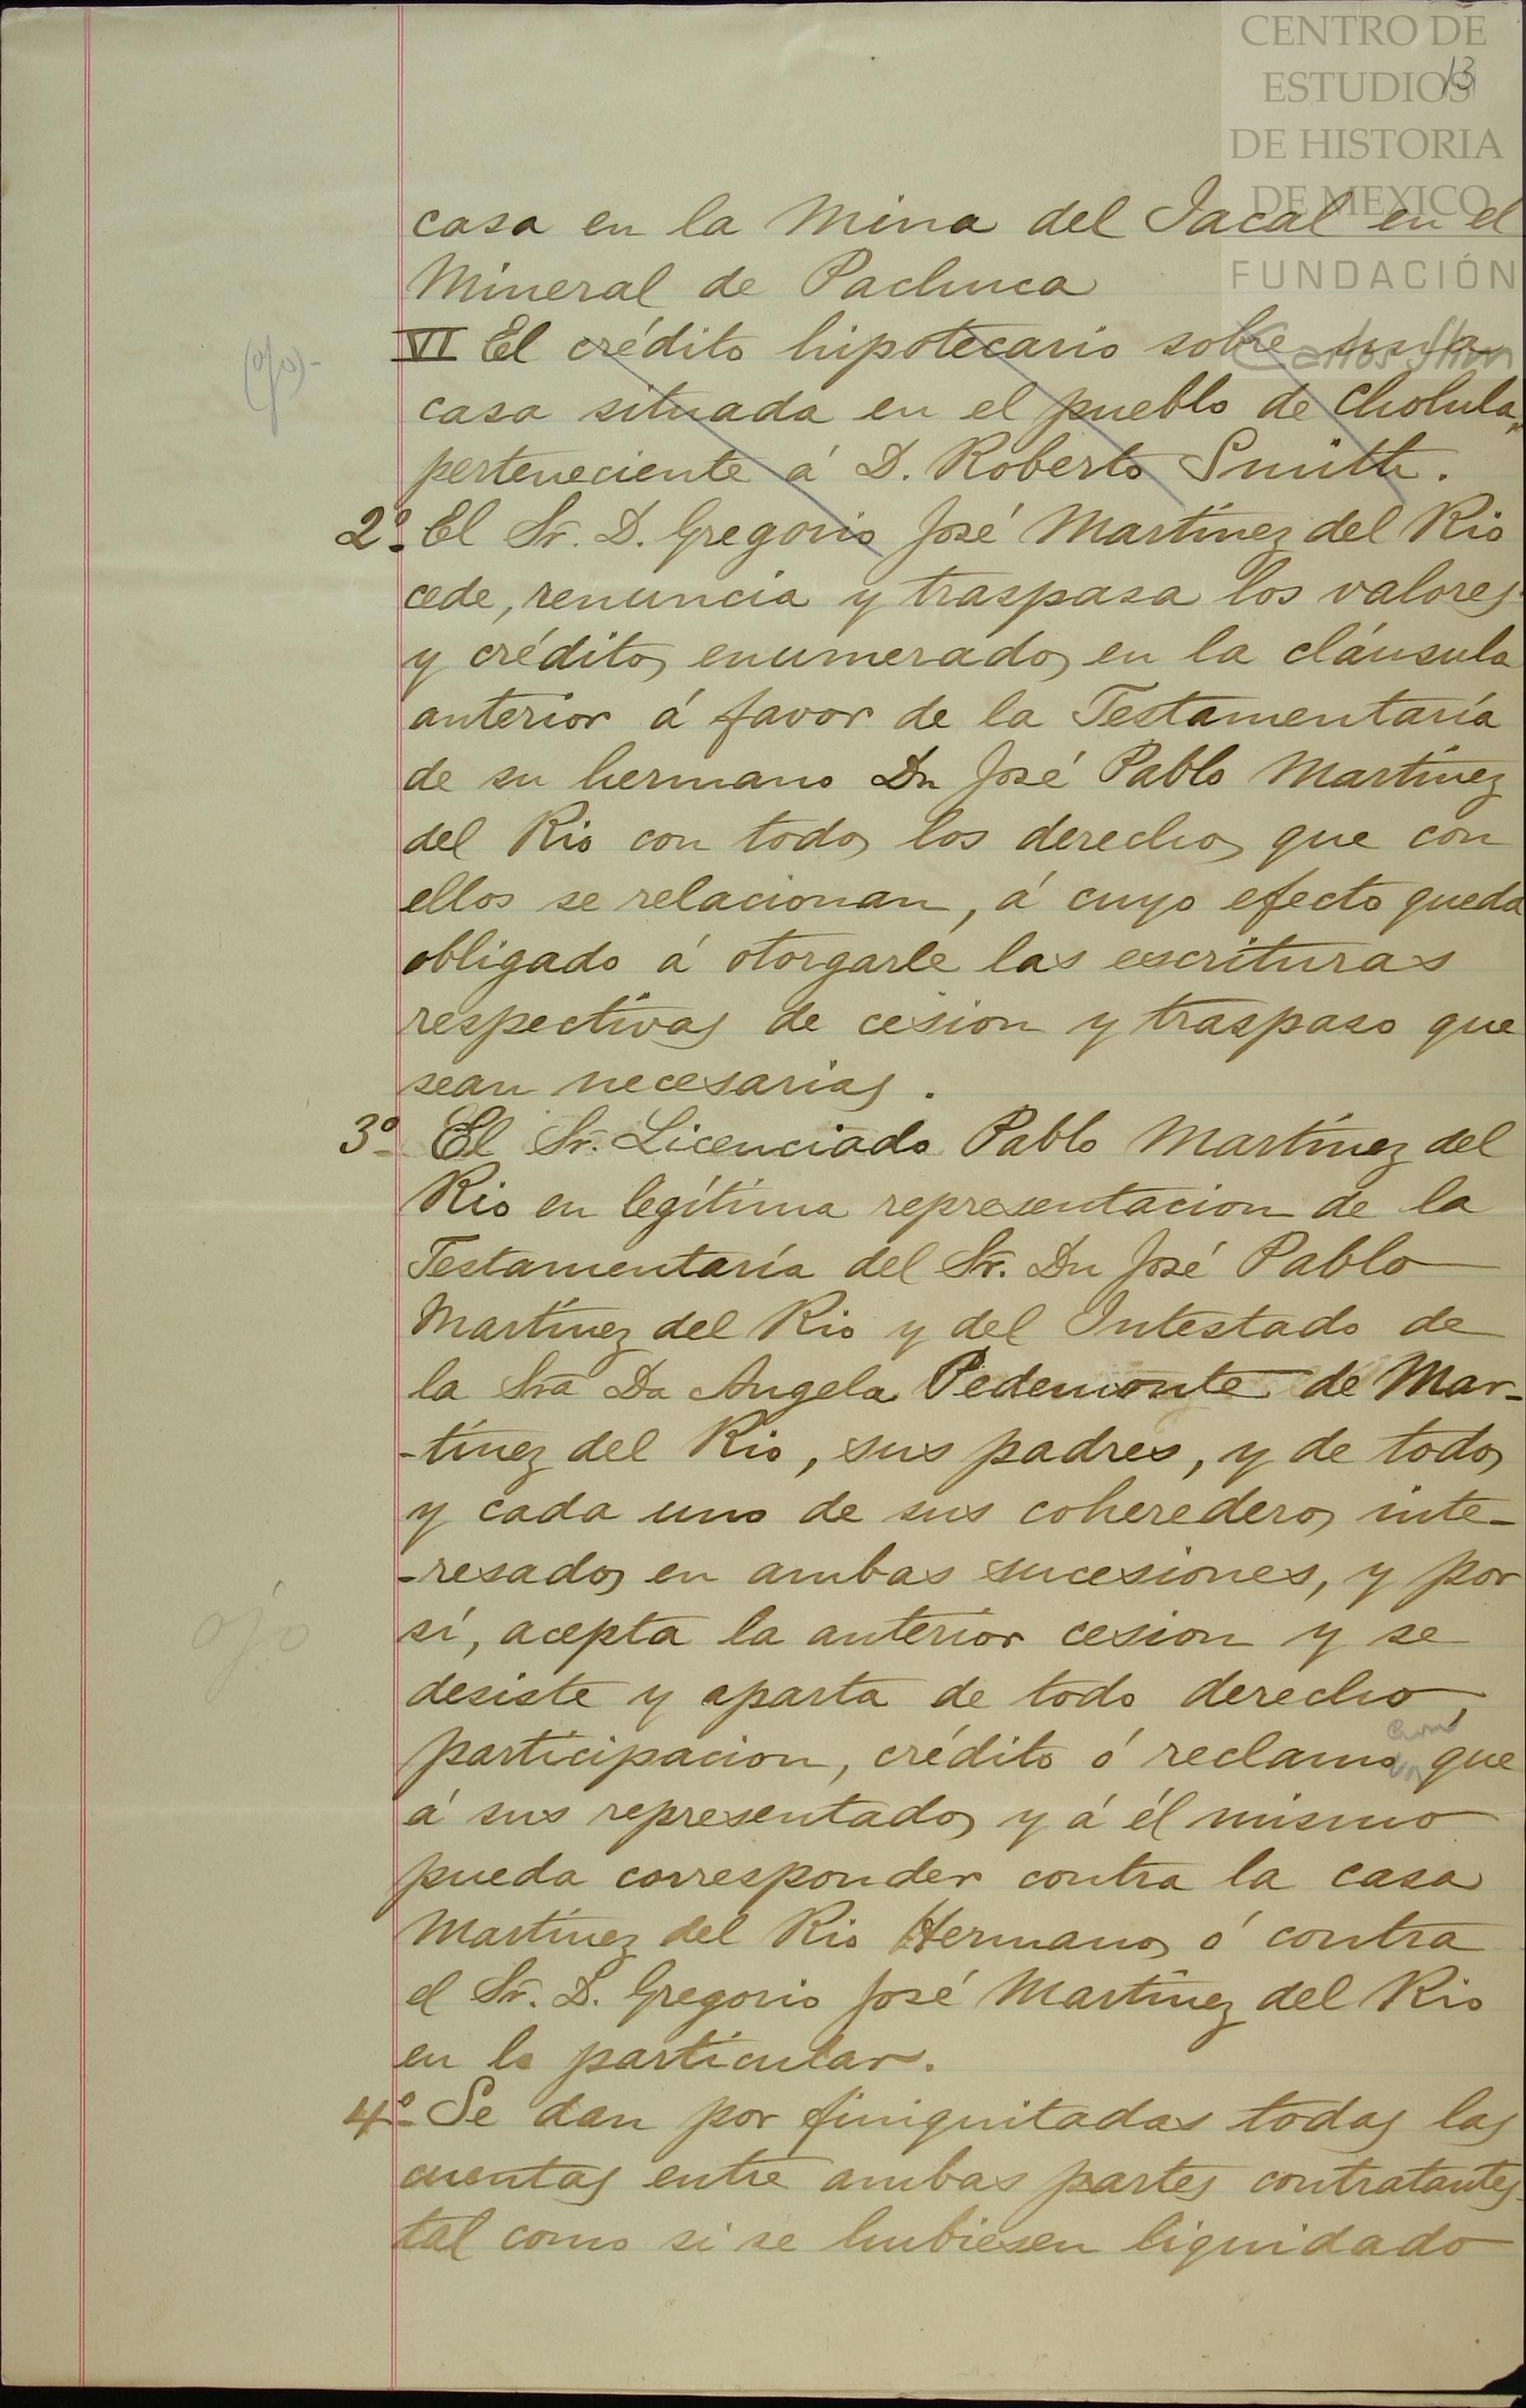 CENTRO DE
ESTUDIOS
DE HISTORIA
DE MEXICO
FUNDACIÓN
Carlos Slim
13
casa en la Mina del Jacal en el
Mineral de Pachuca
(ojo)-
VI El crédito hipotecario sobre una
casa situada en el pueblo de Cholula,
perteneciente á D. Roberto Smith.
2º. El Sr. D. Gregorio José Martínez del Rio
cede, renuncia y traspasa los valores
y créditos enumerados en la cláusula
anterior á favor de la Testamentaría
de su hermano Dn José Pablo Martínez
del Rio con todos los derechos que con
ellos se relacionan, á cuyo efecto queda
obligado á otorgarle las escrituras
respectivas de cesion y traspaso que
sean necesarias.
3º El Sr. Licenciado Pablo Martínez del
Rio en legítima representacion de la
Testamentaría del Sr. Dn José Pablo
Martínez del Rio y del Intestado de
la Sra Da Angela Pedemonte de Mar-
-tínez del Rio, sus padres, y de todos
y cada uno de sus coherederos inte-
-resados en ambas sucesiones, y por
ojo
sí, acepta la anterior cesion y se
desiste y aparta de todo derecho,
participacion, crédito ó reclamo que
á sus representados y á él mismo
pueda corresponder contra la casa
Martínez del Rio Hermanos ó contra
el Sr. D. Gregorio José Martínez del Rio
en lo particular.
4º Se dan por finiquitadas todas las
cuentas entre ambas partes contratantes
tal como si se hubiesen liquidado